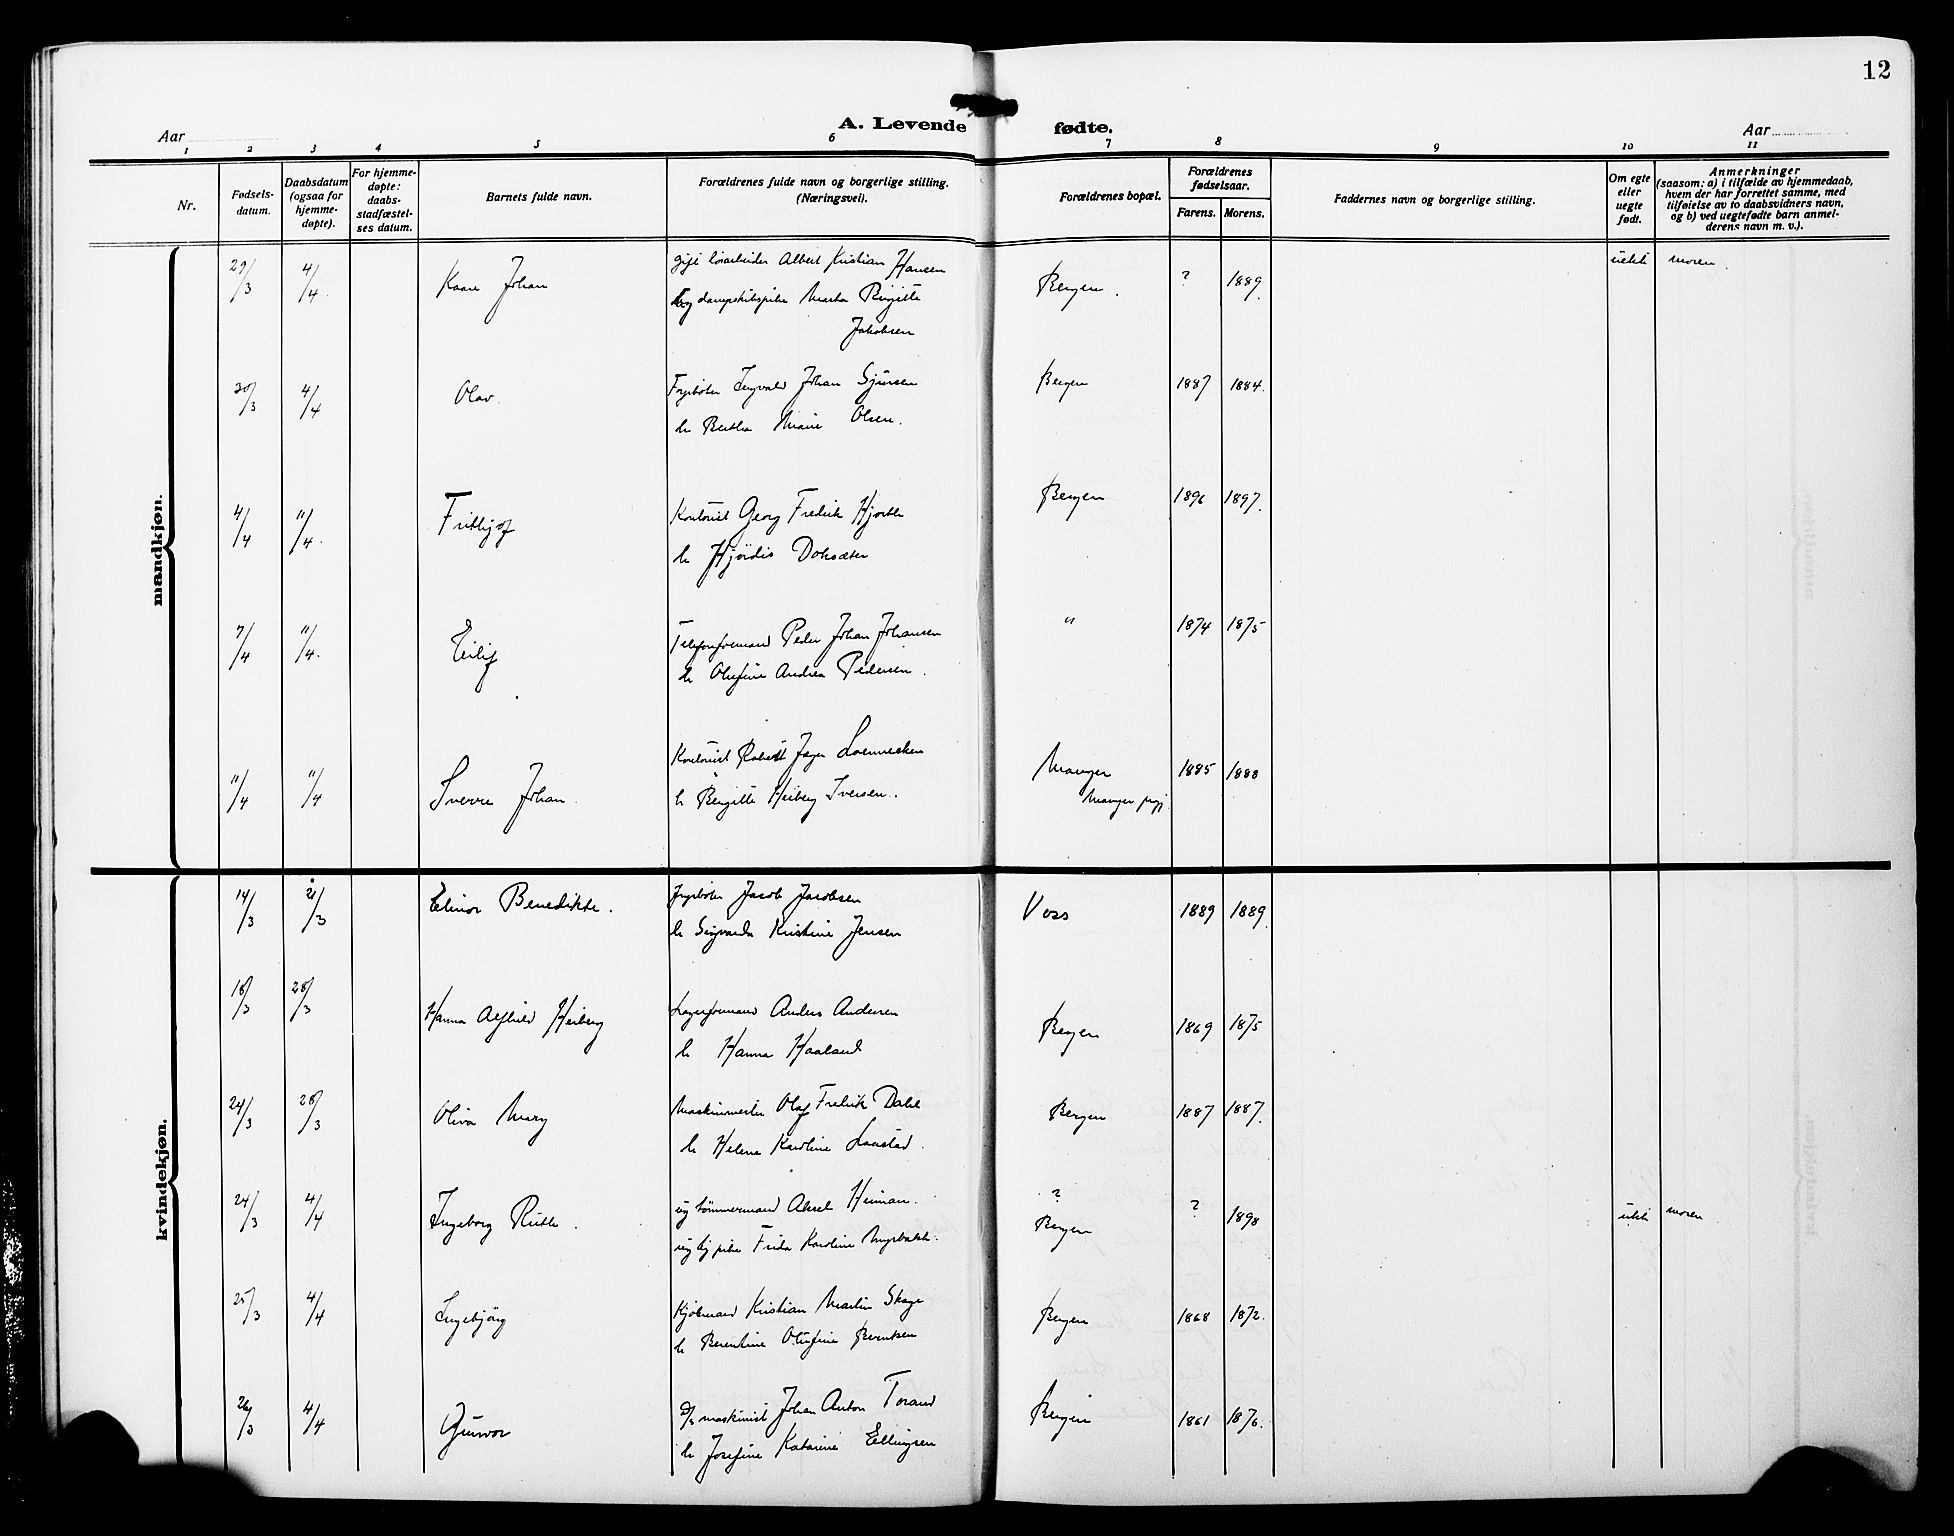 12
A. Levende fødte.
Aar
Aar
1 2 3 4 5 6 7 8 9 10 11
Nr.
Fødsels-
datum.
Daabsdatum
(ogsaa for
hjemme-
døpte).
For hjemme-
døpte:
daabs-
stadfæstel-
ses datum.
Barnets fulde navn.
Forældrenes fulde navn og borgerlige stilling.
(Næringsvei).
Forældrenes bopæl.
Forældrenes
fødselsaar.
Farens. Morens.
Faddernes navn og borgerlige stilling.
Om egte
eller
uegte
født.
Anmerkninger
(saasom: a) i tilfælde av hjemmedaab,
hvem der har forrettet samme, med
tilføielse av to daabsvidners navn,
og b) ved uegtefødte barn anmel-
derens navn m. v.).
mandkjøn.
29/3 4/4 Kaare Johan
gift løsarbeider Albert Kristian Hansen
Marta Birgitte
Jakobsen
Bergen. ? 1889. uekte moren.
30/3 4/4 Olav.
Fyrbøter Ingvald Johan Sjursen
h. Bertha Marie Olsen.
Bergen 1887 1884.
4/4 11/4. Frithjof
Kontorist Georg Fredrik Hjorth
h. Hjørdis Dohsæter
Bergen 1896 1897.
7/4 11/4. Eilif
Telefonformand Peder Johan Johansen
h. Olufine Andrea Pedersen.
" 1874 1875
11/4 11/4 Sverre Johan.
Kontorist Robert Jæger Loennecken
h. Bergitte Heiberg Iversen.
Manger 1885 1888
Manger prgj.
kvindekjøn.
14/3 21/3 Elinor Benedikte.
Fyrbøter Jacob Jacobsen
h. Sigvarda Kristine Jensen
Voss 1889 1889.
18/3 28/3 Hanna Alfhild Heiberg
Lagerformand Anders Andersen
h. Hanna Haaland
Bergen 1869 1875
24/3 28/3 Oliva Mary
Maskinmester Olaf Fredrik Dahl
h. Helene Karoline Laastad.
Bergen 1887 1887.
24/3 4/4 Ingeborg Ruth.
ug tømmermand Aksel Heiman.
ug tj pike Frida Karoline Myrbakk.
? ? 1898 uekte moren
Bergen
25/3 4/4 Ingebjørg
Kjøbmand Kristian Martin Skage
h. Berentine Olufine Berntsen
Bergen 1868 1872.
26/3 4/4 Gunvor
D/s maskinist Johan Anton Torand
h. Josefine Katarine Ellingsen
Bergen 1861 1876.